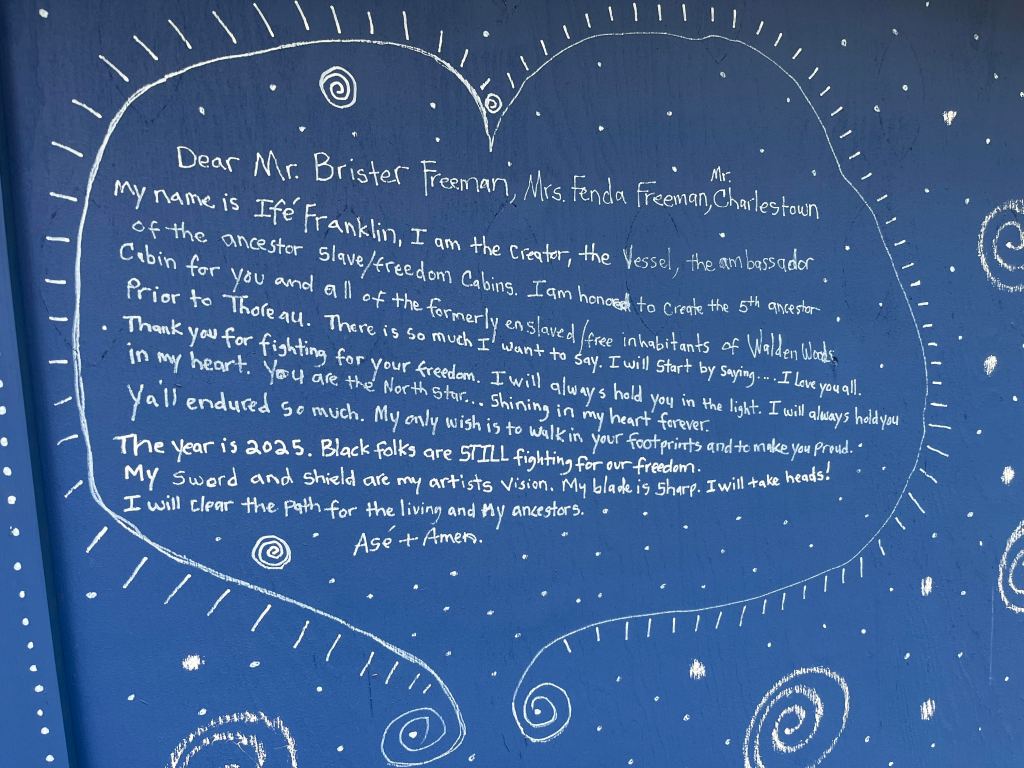 Dear Mr. Brister Freeman, Mrs. Fenda Freeman, Mr. Charlestown
My name is Ifé Franklin, I am the creator, the Vessel, the ambassador
of the ancestor Slave/freedom Cabins. I am honored to create the 5th ancestor
Cabin for you and all of the formerly enslaved/free inhabitants of Walden Woods
Prior to Thoreau. There is so much I want to say. I will start by saying.... I love you all.
Thank you for fighting for your freedom. I will always hold you in the light. I will always hold you
in my heart. You are the North Star... Shining in my heart forever.
Ya'll endured so much. My only wish is to walk in your footprints and to make you proud.
The year is 2025. Black folks are STILL fighting for our freedom.
My Sword and Shield are my artists Vision. My blade is Sharp. I will take heads!
I will clear the path for the living and My ancestors.
Asé + Ámen.